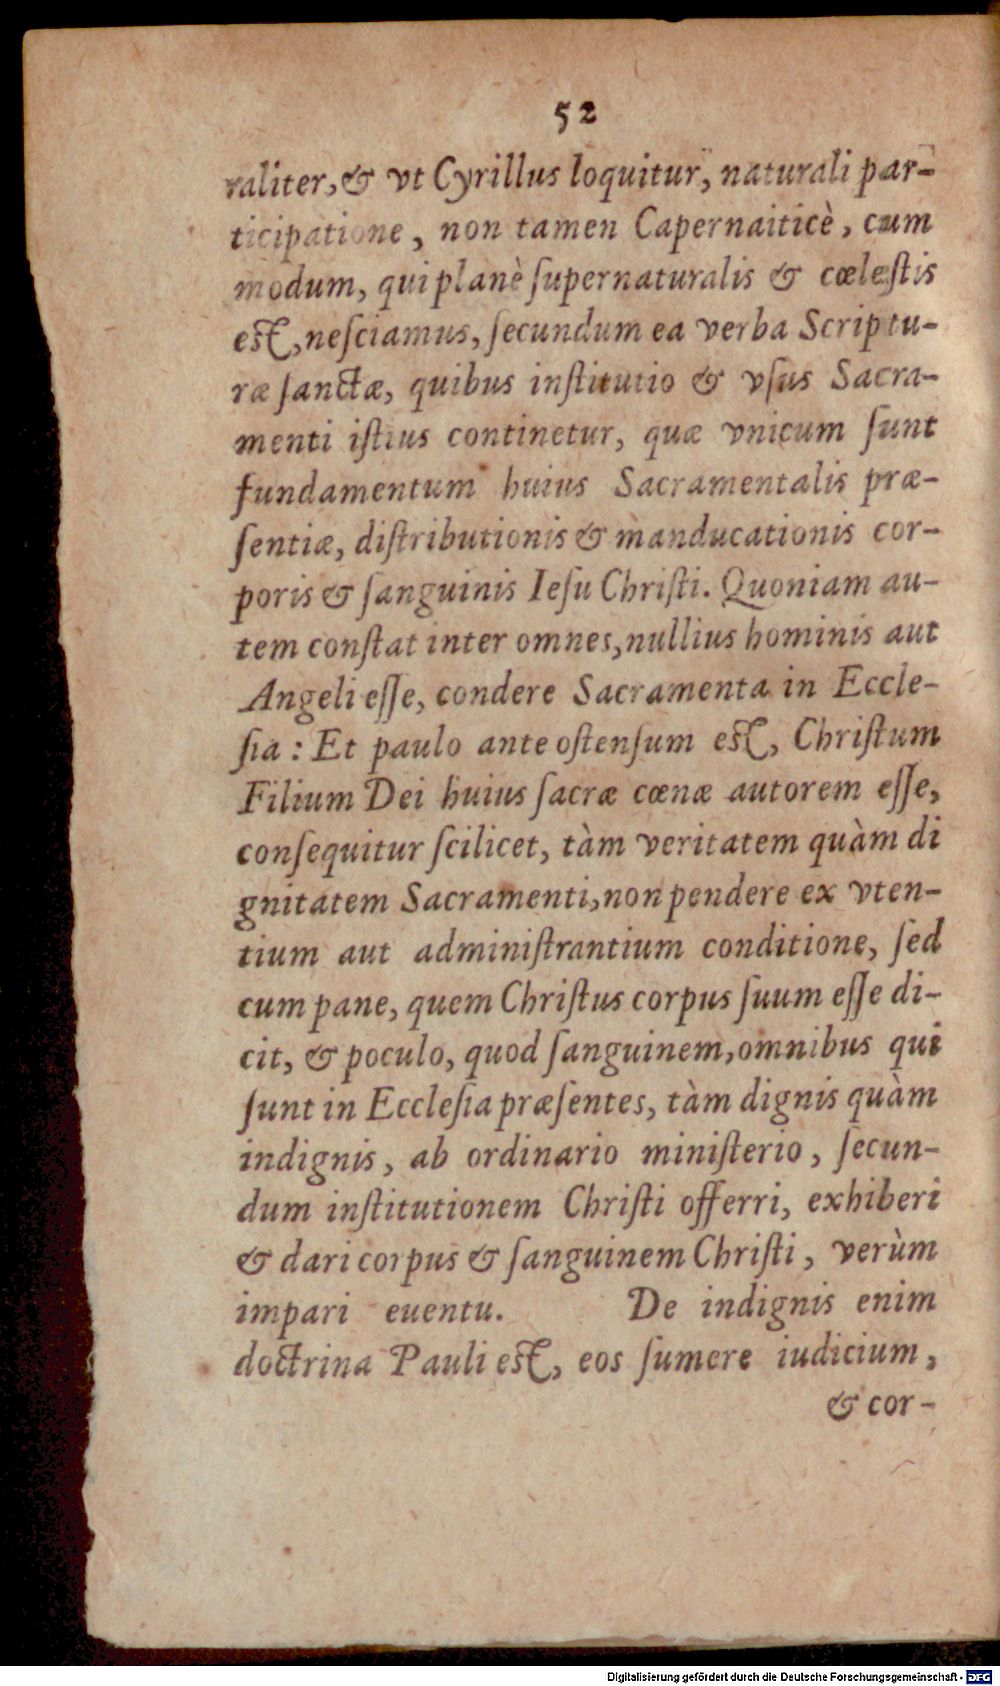 52
raliter, & vt Cyrillus loquitur, naturali par-
ticipatione, non tamen Capernaiticè, cum
modum, qui planè ſupernaturalis & cœleſtis
eſt, neſciamus, ſecundum ea verba Scriptu-
ræ ſanctæ, quibus inſtitutio & vſus Sacra-
menti iſtius continetur, quæ vnicum ſunt
fundamentum huius Sacramentalis præ-
ſentiæ, diſtributionis & manducationis cor-
poris & ſanguinis Ieſu Chriſti. Quoniam au-
tem conſtat inter omnes, nullius hominis aut
Angeli eſſe, condere Sacramenta in Eccle-
ſia: Et paulo ante oſtenſum eſt, Chriſtum
Filium Dei huius ſacræ cœnæ autorem eſſe,
conſequitur ſcilicet, tàm veritatem quàm di
gnitatem Sacramenti, non pendere ex vten-
tium aut adminiſtrantium conditione, ſed
cum pane, quem Chriſtus corpus ſuum eſſe di-
cit, & poculo, quod ſanguinem, omnibus qui
ſunt in Eccleſia præſentes, tàm dignis quàm
indignis, ab ordinario miniſterio, ſecun-
dum inſtitutionem Chriſti offerri, exhiberi
& dari corpus & ſanguinem Chriſti, verùm
impari euentu. De indignis enim
doctrina Pauli eſt, eos ſumere iudicium,
& cor-
Digitalisierung gefördert durch die Deutsche Forschungsgemeinschaft - DFG